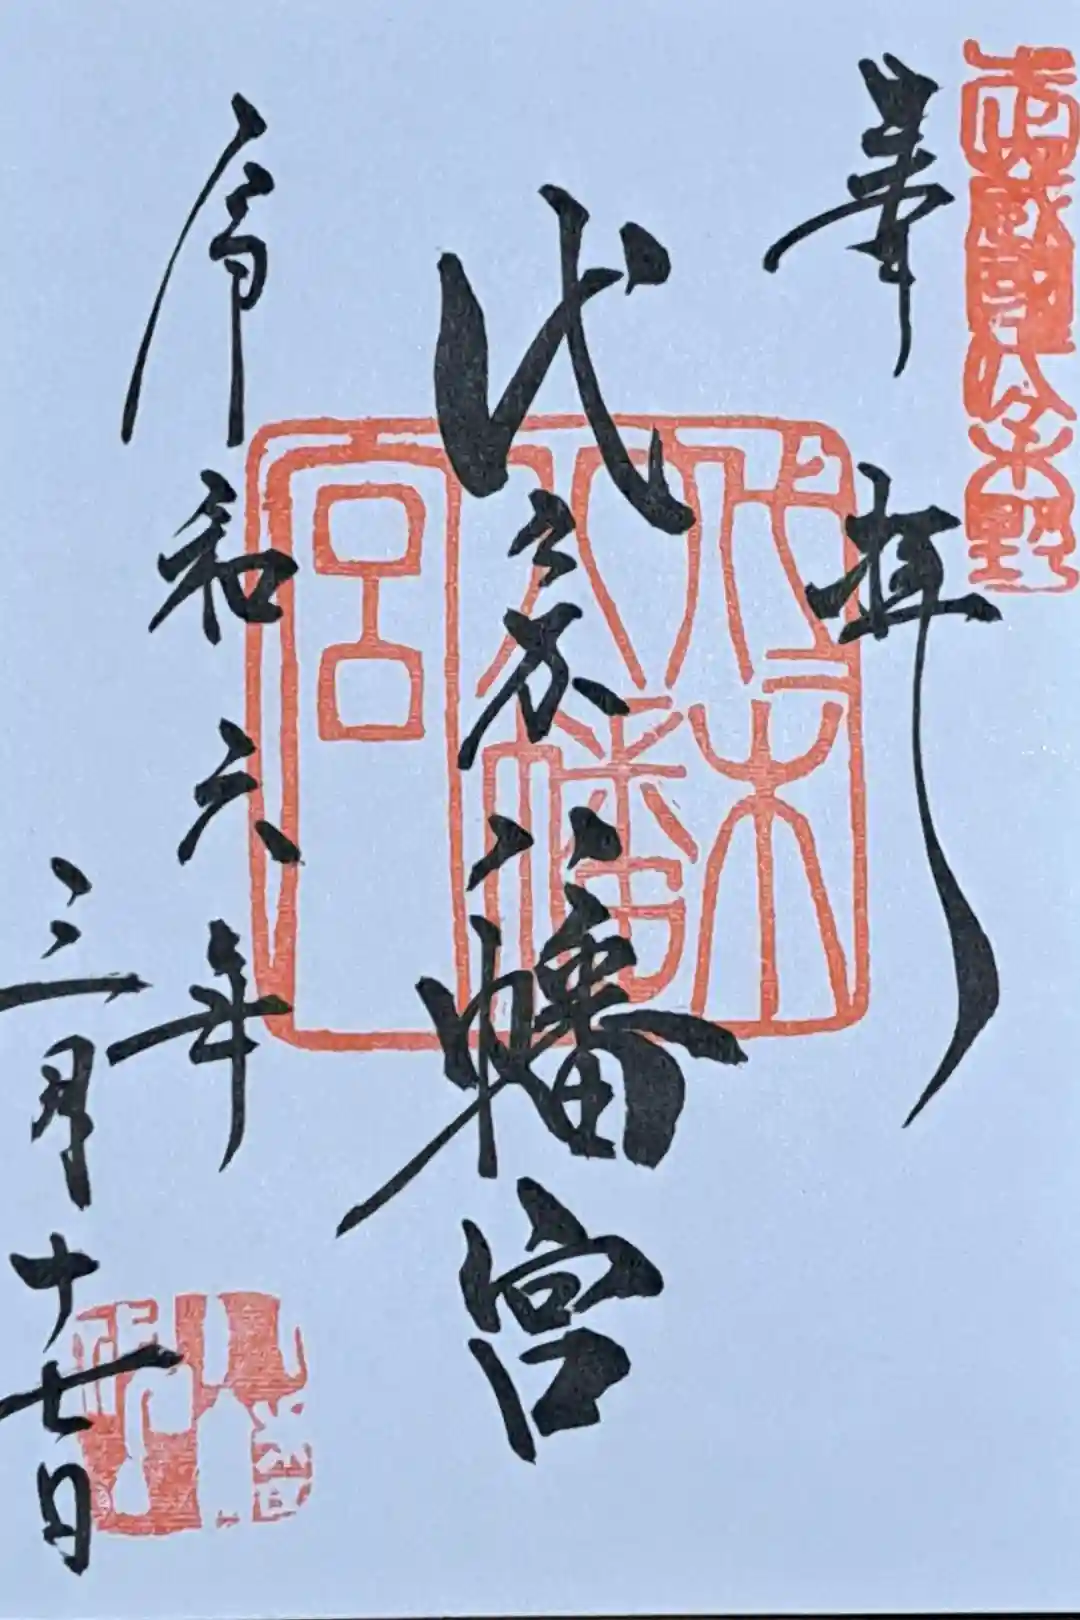 武蔵國代々木野
奉拝
代々木八幡宮
代々木
八幡
宮
令和六年
三月十七日